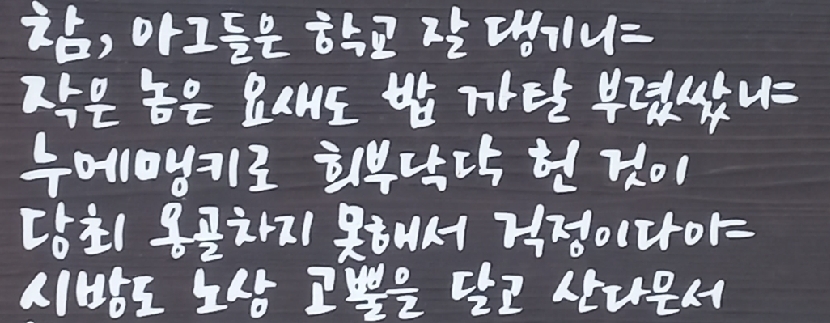 참, 아그들은 학교 잘 댕기냐=
작은 놈은 요새도 밥 까탈 부렸쌌냐=
누에맹키로 희부닥닥 헌 것이
당최 옹골차지 못해서 걱정이다야=
시방도 노상 고뿔을 달고 산다문서